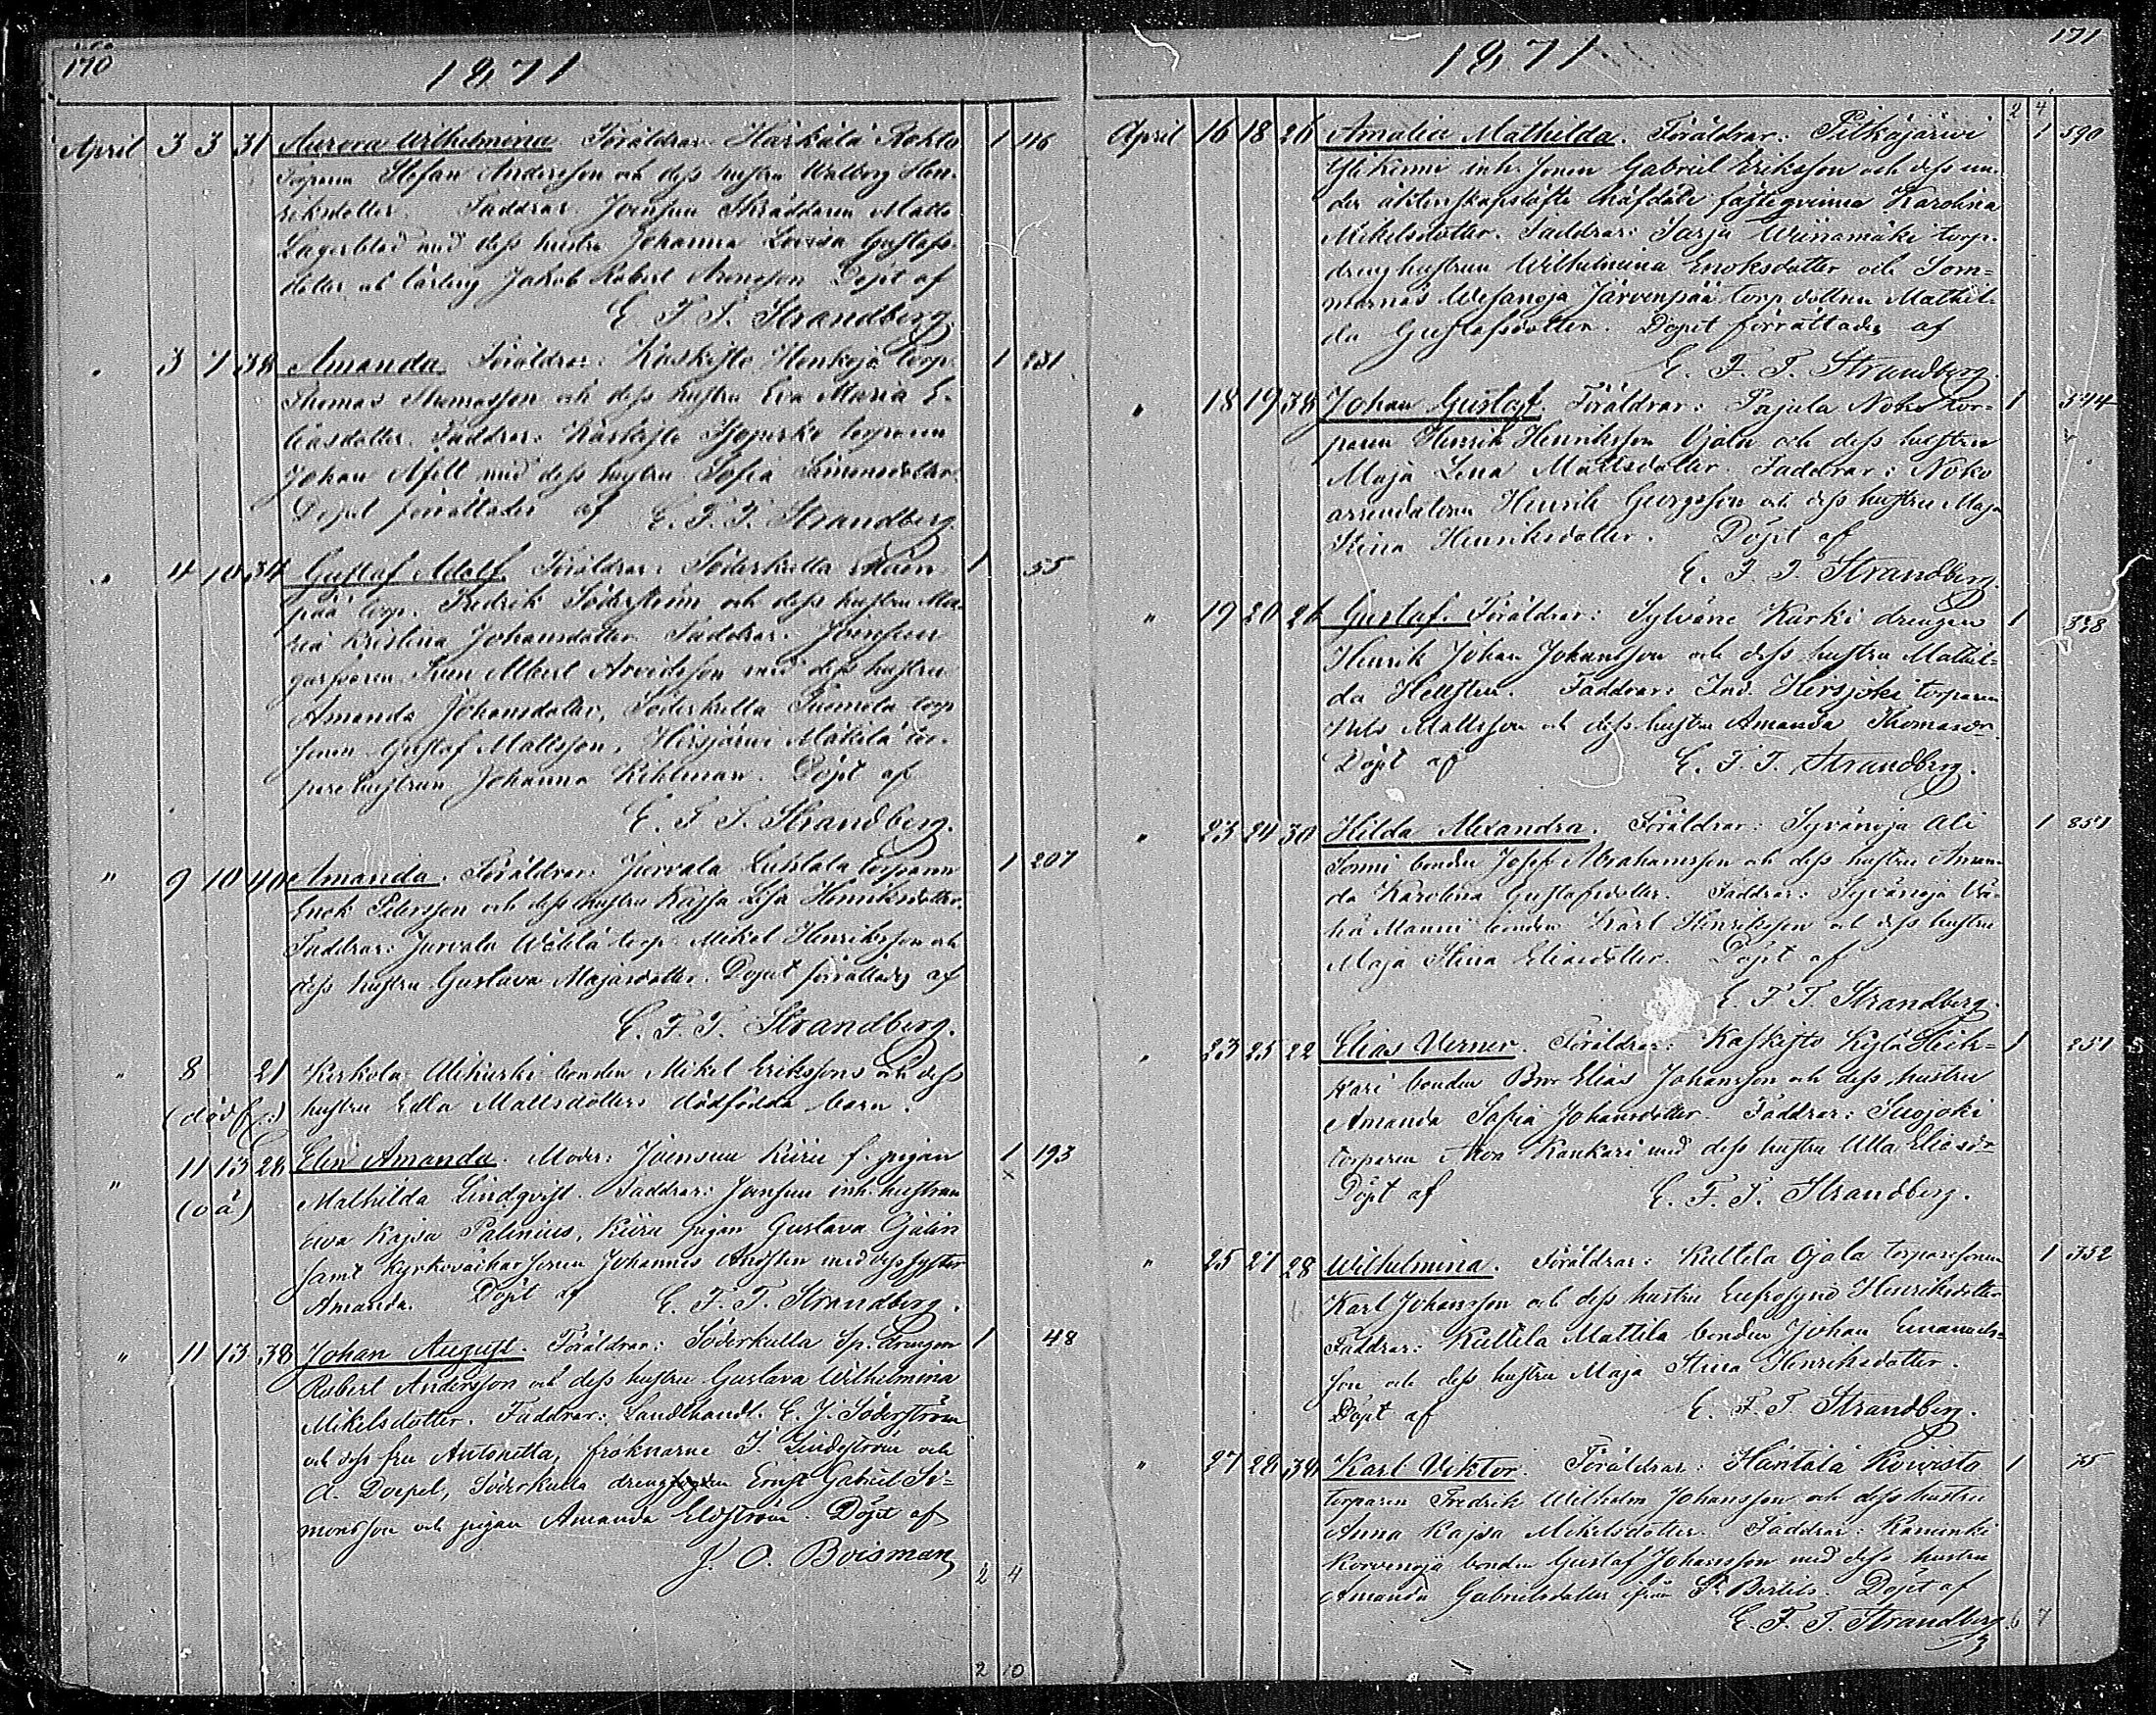 170
1871
April 3 3 31 Aurora Wilhelmina. Föräldrar: Härkälä Rokko 1 116
torparen Stefan Andersson och dess hustru Walborg Hen-
riksdotter. Faddrar: Joensuu Skräddaren Matts
Lagerblad med dess hustru Johanna Lovisa Gustafs-
dotter och lärling Jakob Robert Aronsson Döpt af
E. F. T. Strandberg.
" 3 7 38 Amanda. Föräldrar: Kaskisto torp.
Thomas Thomasson och dess hustru Eva Maria E- 1 231
liasdotter. Faddrar: Kaskisto torparen
Johan Afell med dess hustru Sofia Simonsdotter.
Döpet förrättades af E. F. T. Strandberg.
" 4 10 34 Gustaf Adolf. Föräldrar: Söderkulla 1 55
pää torp. Fredrik Söderström och dess hustru Ma-
ria Kristina Johansdotter Faddrar: Joensuu
garfvaren Sven Albert Arvidsson med dess hustru
Amanda Johansdotter, Söderkulla Suomela torp
sonen Gustaf Mattsson, Hirsjärvi Mäkilä tor-
parehustrun Johanna Kihlman. Döpt af
E. F. T. Strandberg.
" 9 10 40 Amanda. Föräldrar: Jurvala torparen 1 207
Enok Petersson och dess hustru Kajsa Lisa Henriksdotter.
Faddrar: Jurvala torp. Mikel Henriksson och
dess hustru Gustava Majasdotter. Döpet förrättades af
E. F. T. Strandberg.
" 8 21 Kerkola Alikurki bonden Mikel Erikssons och dess
(dödf:) hustru Edla Mattsdotters dödfödda barn.
" 11 13 28 Elin Amanda. Moder: Joensuu Kiiru f. pigan 1 193
(oä) Mathilda Lindqvist. Faddrar: Joensuu inh. hustrun
Eva Kajsa Palinius, Kiiru pigan Gustava
samt Kyrkoväktar sonen Johannes med dess syster
Amanda. Döpt af E. F. T. Strandberg.
" 11 13 38 Johan August. Föräldrar: Söderkulla Sp. drengen 1 48
Robert Andersson och dess hustru Gustava Wilhelmina
Mikelsdotter. Faddrar: Landthandl. E. J. Söderström
och dess fru Antonetta, fröknarne J. Lindeström och
A. Doepel, Söderkulla drengen Ernst Gabriel Si-
monsson och pigan Amanda Eldström. Döpt af
J. O. Boisman
2 4
2 10
171
1871
2 4
April 16 18 26 Amalia Mathilda. Föräldrar: Pitkäjärvi 1 590
inh. sonen Gabriel Eriksson och dess un-
der äktenskapslöfte häfdade fästeqvinna Karolina
Mikelsdotter. Faddrar: Sarja Wiinamäki torp.
drenghustrun Wilhelmina Enoksdotter och Som-
marnäs Wesanoja Järvenpää torp dottren Mathil-
da Gustafsdotter. Döpet förrättades af
E. F. T. Strandberg.
" 18 19 38 Johan Gustaf. Föräldrar: Pajula Noko tor- 1 374
paren Henrik Henriksson Ojala och dess hustru
Maja Lena Mattsdotter. Faddrar: Noko
arrendatorn Henrik Georgsson och dess hustru Maja
Stina Henriksdotter. Döpt af
E. F. T. Strandberg.
" 19 20 26 Gustaf. Föräldrar: Sylväne Kurki drengen 1 338
Henrik Johan Johansson och dess hustru Mathil-
da Hellsten. Faddrar: Ind. Hirsjoki torparen
Nils Mattsson och dess hustru Amanda Thomasdr.
Döpt af E. F. T. Strandberg.
" 23 24 30 Hilda Alexandra. Föräldrar: Syvänoja Ali 1 851
Sonni bonden Josef Abrahamsson och dess hustru Aman-
da Karolina Gustafsdotter. Faddrar: Syvänoja Vä-
hä Manni bonden Karl Henriksson och dess hustru
Maja Stina Eliasdotter. Döpt af
E. F. T. Strandberg.
" 23 25 22 Elias Verner. Föräldrar: Kaskisto Kylä Heik- 1 251
kari bonden Bror Elias Johansson och dess hustru
Amanda Sofia Johansdotter. Faddrar: Suojoki
torparen Kankari med dess hustru Ulla Eliasdr
Döpt af E. F. T. Strandberg.
" 25 27 28 Wilhelmina. Föräldrar: Kultila Ojala torparesonen 1 352
Karl Johansson och dess hustru Eufrosyne Henriksdotter
Faddrar: Kultila Mattila bonden Johan Emanuels-
son och dess hustru Maja Stina Henriksdotter.
Döpt af E. F. T. Strandberg.
" 27 28 38 Karl Viktor. Föräldrar: Häntälä Koivisto 1 75
torparen Fredrik Wilhelm Johansson och dess hustru
Anna Kajsa Mikelsdotter. Faddrar: Kaninki
Korvenoja bonden Gustaf Johansson med dess hustru
Amanda Gabrielsdotter ifrån St. Bertils. Döpt af
E. F. T. Strandberg.
6 7